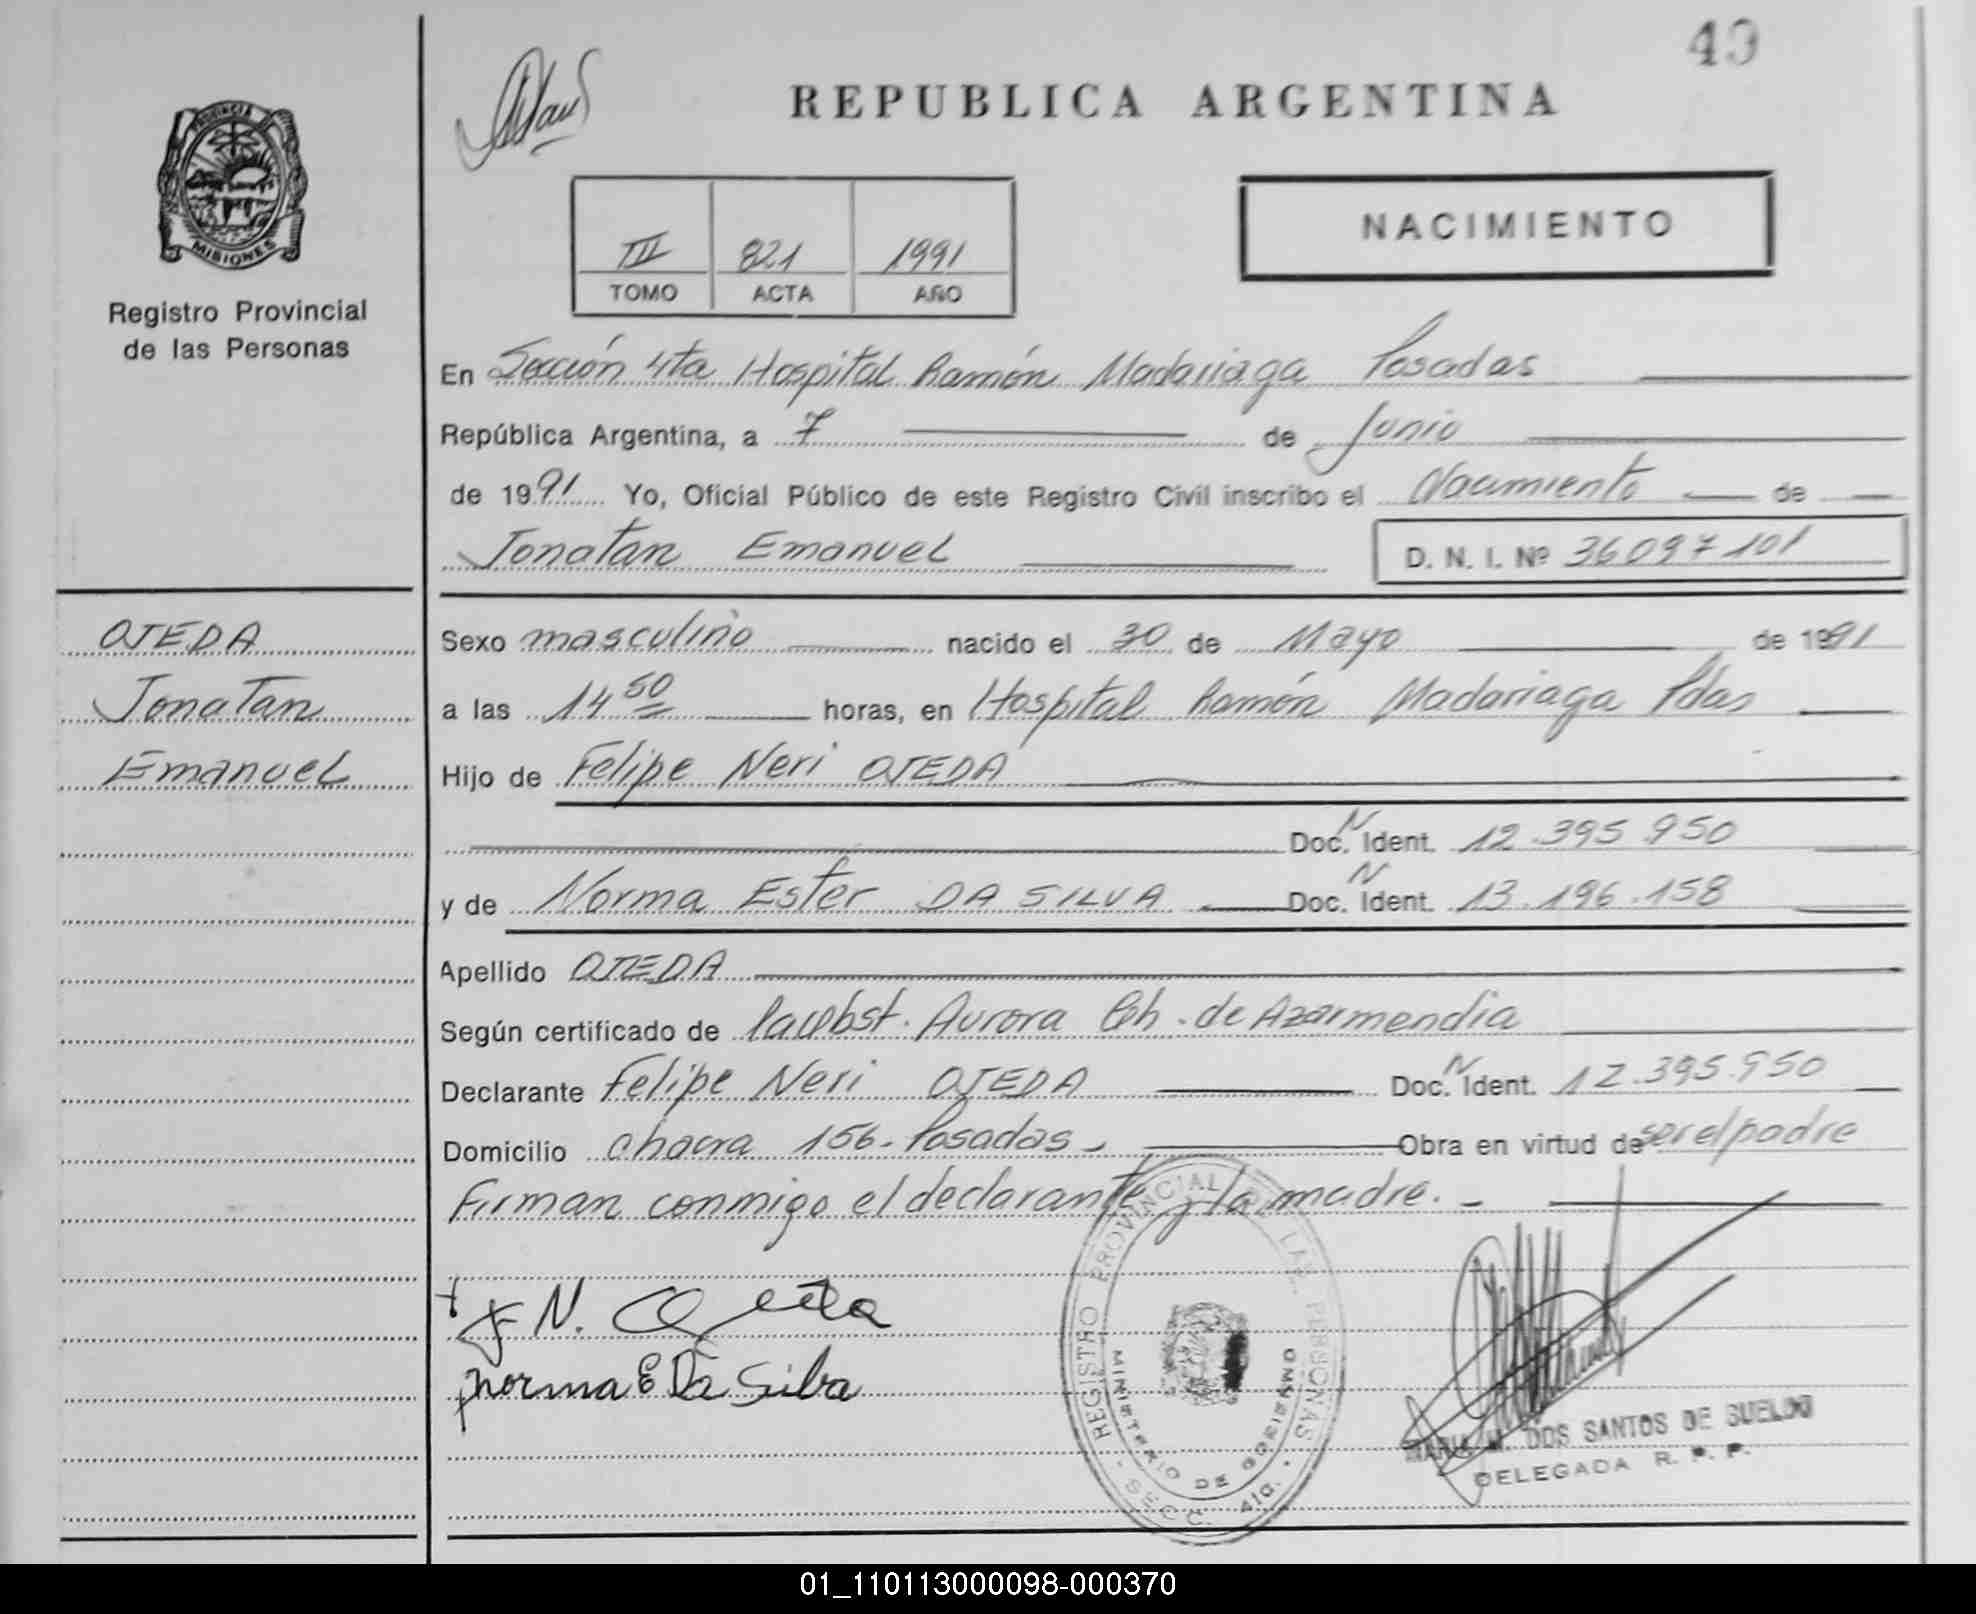 49
REPUBLICA ARGENTINA
PROVINCIA
MISIONES
Registro Provincial
de las Personas
III 821 1991
TOMO ACTA AÑO
NACIMIENTO
En Sección 4ta Hospital Ramón Madariaga Posadas
República Argentina, a 7 de Junio
de 1991 Yo, Oficial Público de este Registro Civil inscribo el Nacimiento de
Jonatan Emanuel D. N. I. Nº 36097101
OJEDA
Jonatan
Emanuel
Sexo masculino nacido el 30 de Mayo de 1991
a las 14 50 horas, en Hospital Ramón Madariaga Pdas
Hijo de Felipe Neri OJEDA
Doc. N Ident. 12.395.950
y de Norma Ester DA SILVA Doc. N Ident. 13.196.158
Apellido OJEDA
Según certificado de Aurora de Azarmendia
Declarante Felipe Neri OJEDA Doc. N Ident. 12.395.950
Domicilio chacra 156 - Posadas - Obra en virtud de ser el padre
Firman conmigo el declarante y la madre. -
F N. Ojeda
norma E Da Silba
REGISTRO PROVINCIAL DE LAS PERSONAS
MINISTERIO DE GOBIERNO
SECC. 4ta.
MARIA M. DOS SANTOS DE SUELDO
DELEGADA R. P. P.
01_110113000098-000370